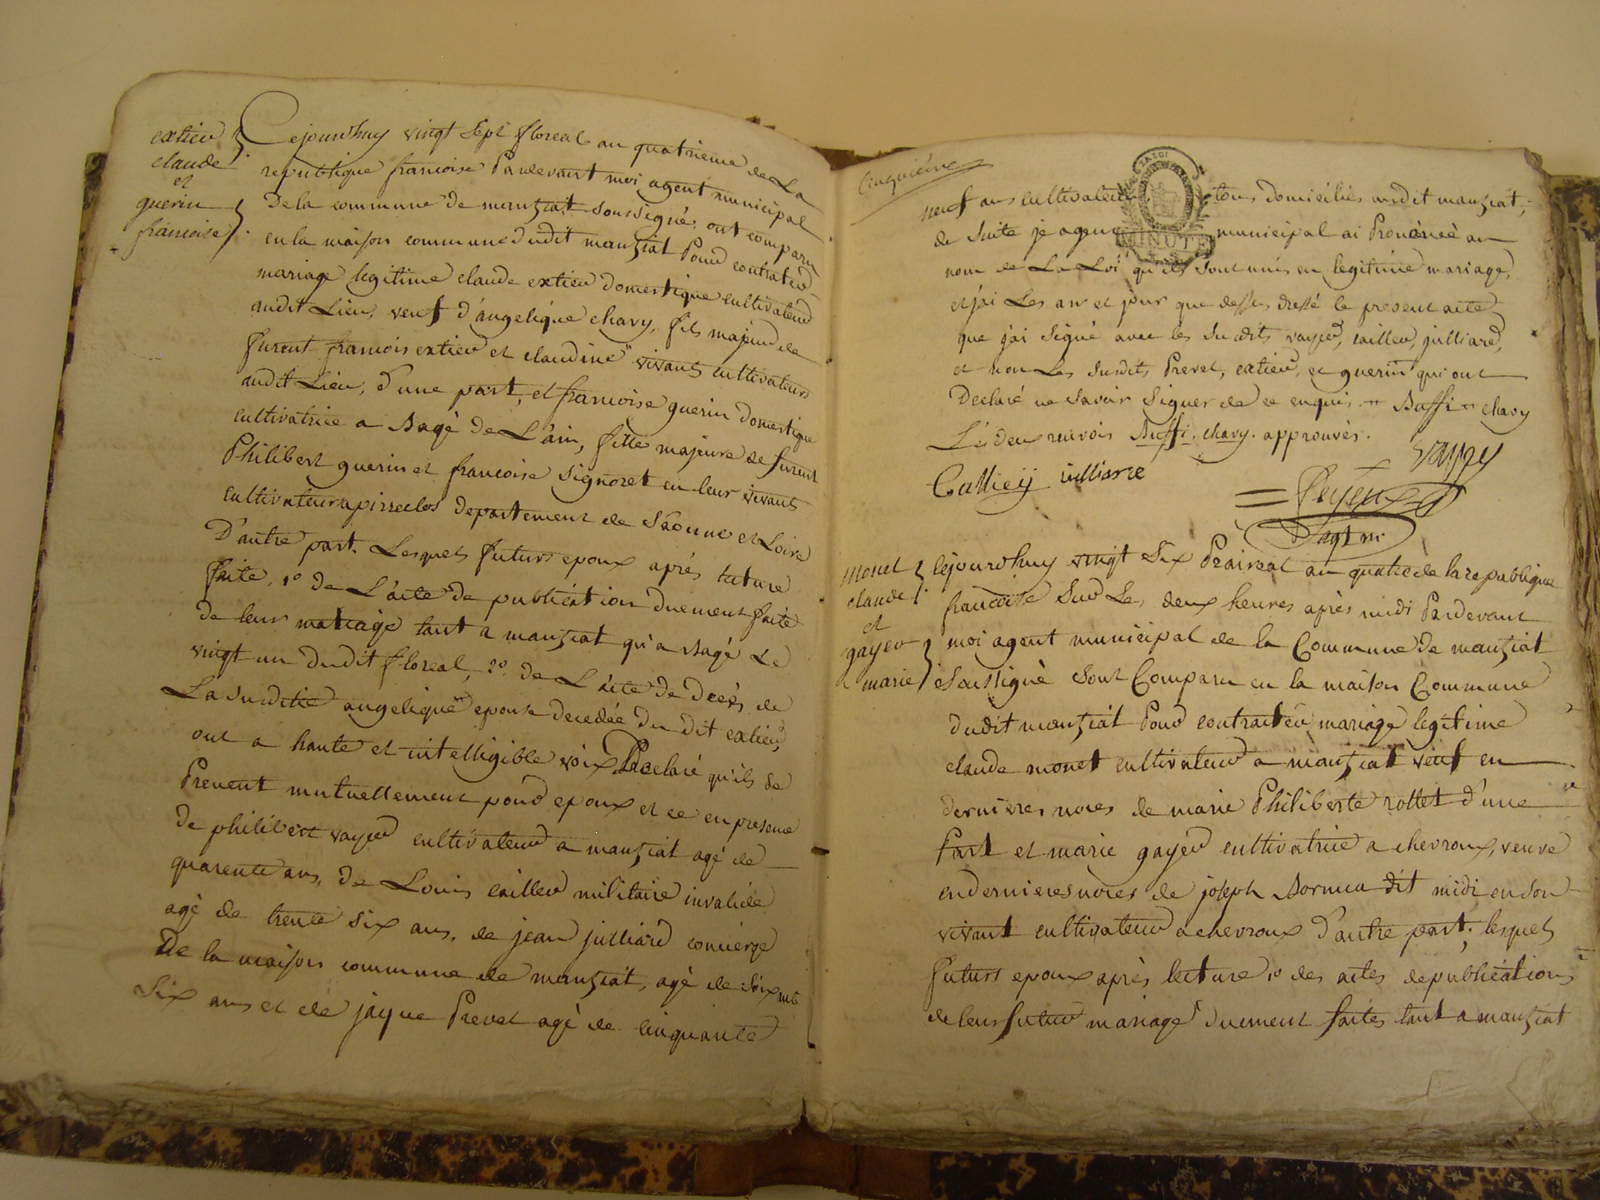 extier
claude
et
guerin
francoise
Cejourdhuy vingt sept floreal an quatrieme de La
republique francoise Pardevant moi agent municipal
De la commune de manziat soussigné, ont comparu
en la maison commune dudit manziat Pour contracter
mariage legitime claude extier domestique cultivateur
audit Lieu, veuf d'angelique chavy, fils majeur de
furent francois extier et claudine " vivants cultivateurs
audit Lieu, d'une part, et francoise guerin domestique
cultivatrice a Bagé De L'ain, fille majeure de furent
Philibert guerin et francoise signoret en leur vivants
cultivateurs departement de Saonne et Loire
D'autre part. Lesquels futurs epoux après lecture
faite, 1° de L'acte de publication duement faite
de leur mariage tant a manziat qu'a Bagé Le
vingt un dudit floreal, 2° de L'acte de decés de
La susditte angelique " epouse decedée du dit extier,
ont a haute et intelligible voix Declaré qu'ils se
Prenent mutuellement pour epoux et ce en presence
de philibert vayer cultivateur a manziat agé de
quarente ans, de Louis cailler militaire invalide
agé de trente six ans, de jean julliard concierge
De la maison commune de manziat, agé de soixente
six ans et de jaque Prevet agé de cinquante
Cinquième
neuf ans cultivateur tous domiciliés audit manziat;
MINUTE
de suite je agent municipal ai Prononcé au
nom de La Loi qu'ils sont unis en legitime mariage,
et j'ai Les an et jour que dessus dressé le present acte
que j'ai signé avec les susdits vayer, cailler, julliard,
et non Les susdits Prevet, extier, et guerin qui ont
Declaré ne savoir signer de ce enquis " Buffi " chavy
Les deux renvois Buffi. chavy. approuvés.
vayzy
Calliey julliard
agt m.
monet
claude
et
gayer
marie
Cejourdhuy vingt six Prairial an quatre de la republique
francoise sur Les deux heures après midi Pardevant
moi agent municipal de la Commune de manziat
soussigné sont Comparu en la maison Commune
dudit manziat Pour contracter mariage legitime
claude monet cultivateur a manziat veuf en
dernieres noces de marie Philiberte rollet d'une
Part et marie gayer cultivatrice a chevroux, veuve
en dernieres noces de joseph Bornua dit midi en son
vivant cultivateur a chevroux d'autre part; lesquels
futurs epoux après lecture 1° des actes de publications
de leur futur mariage duement faites tant a manziat